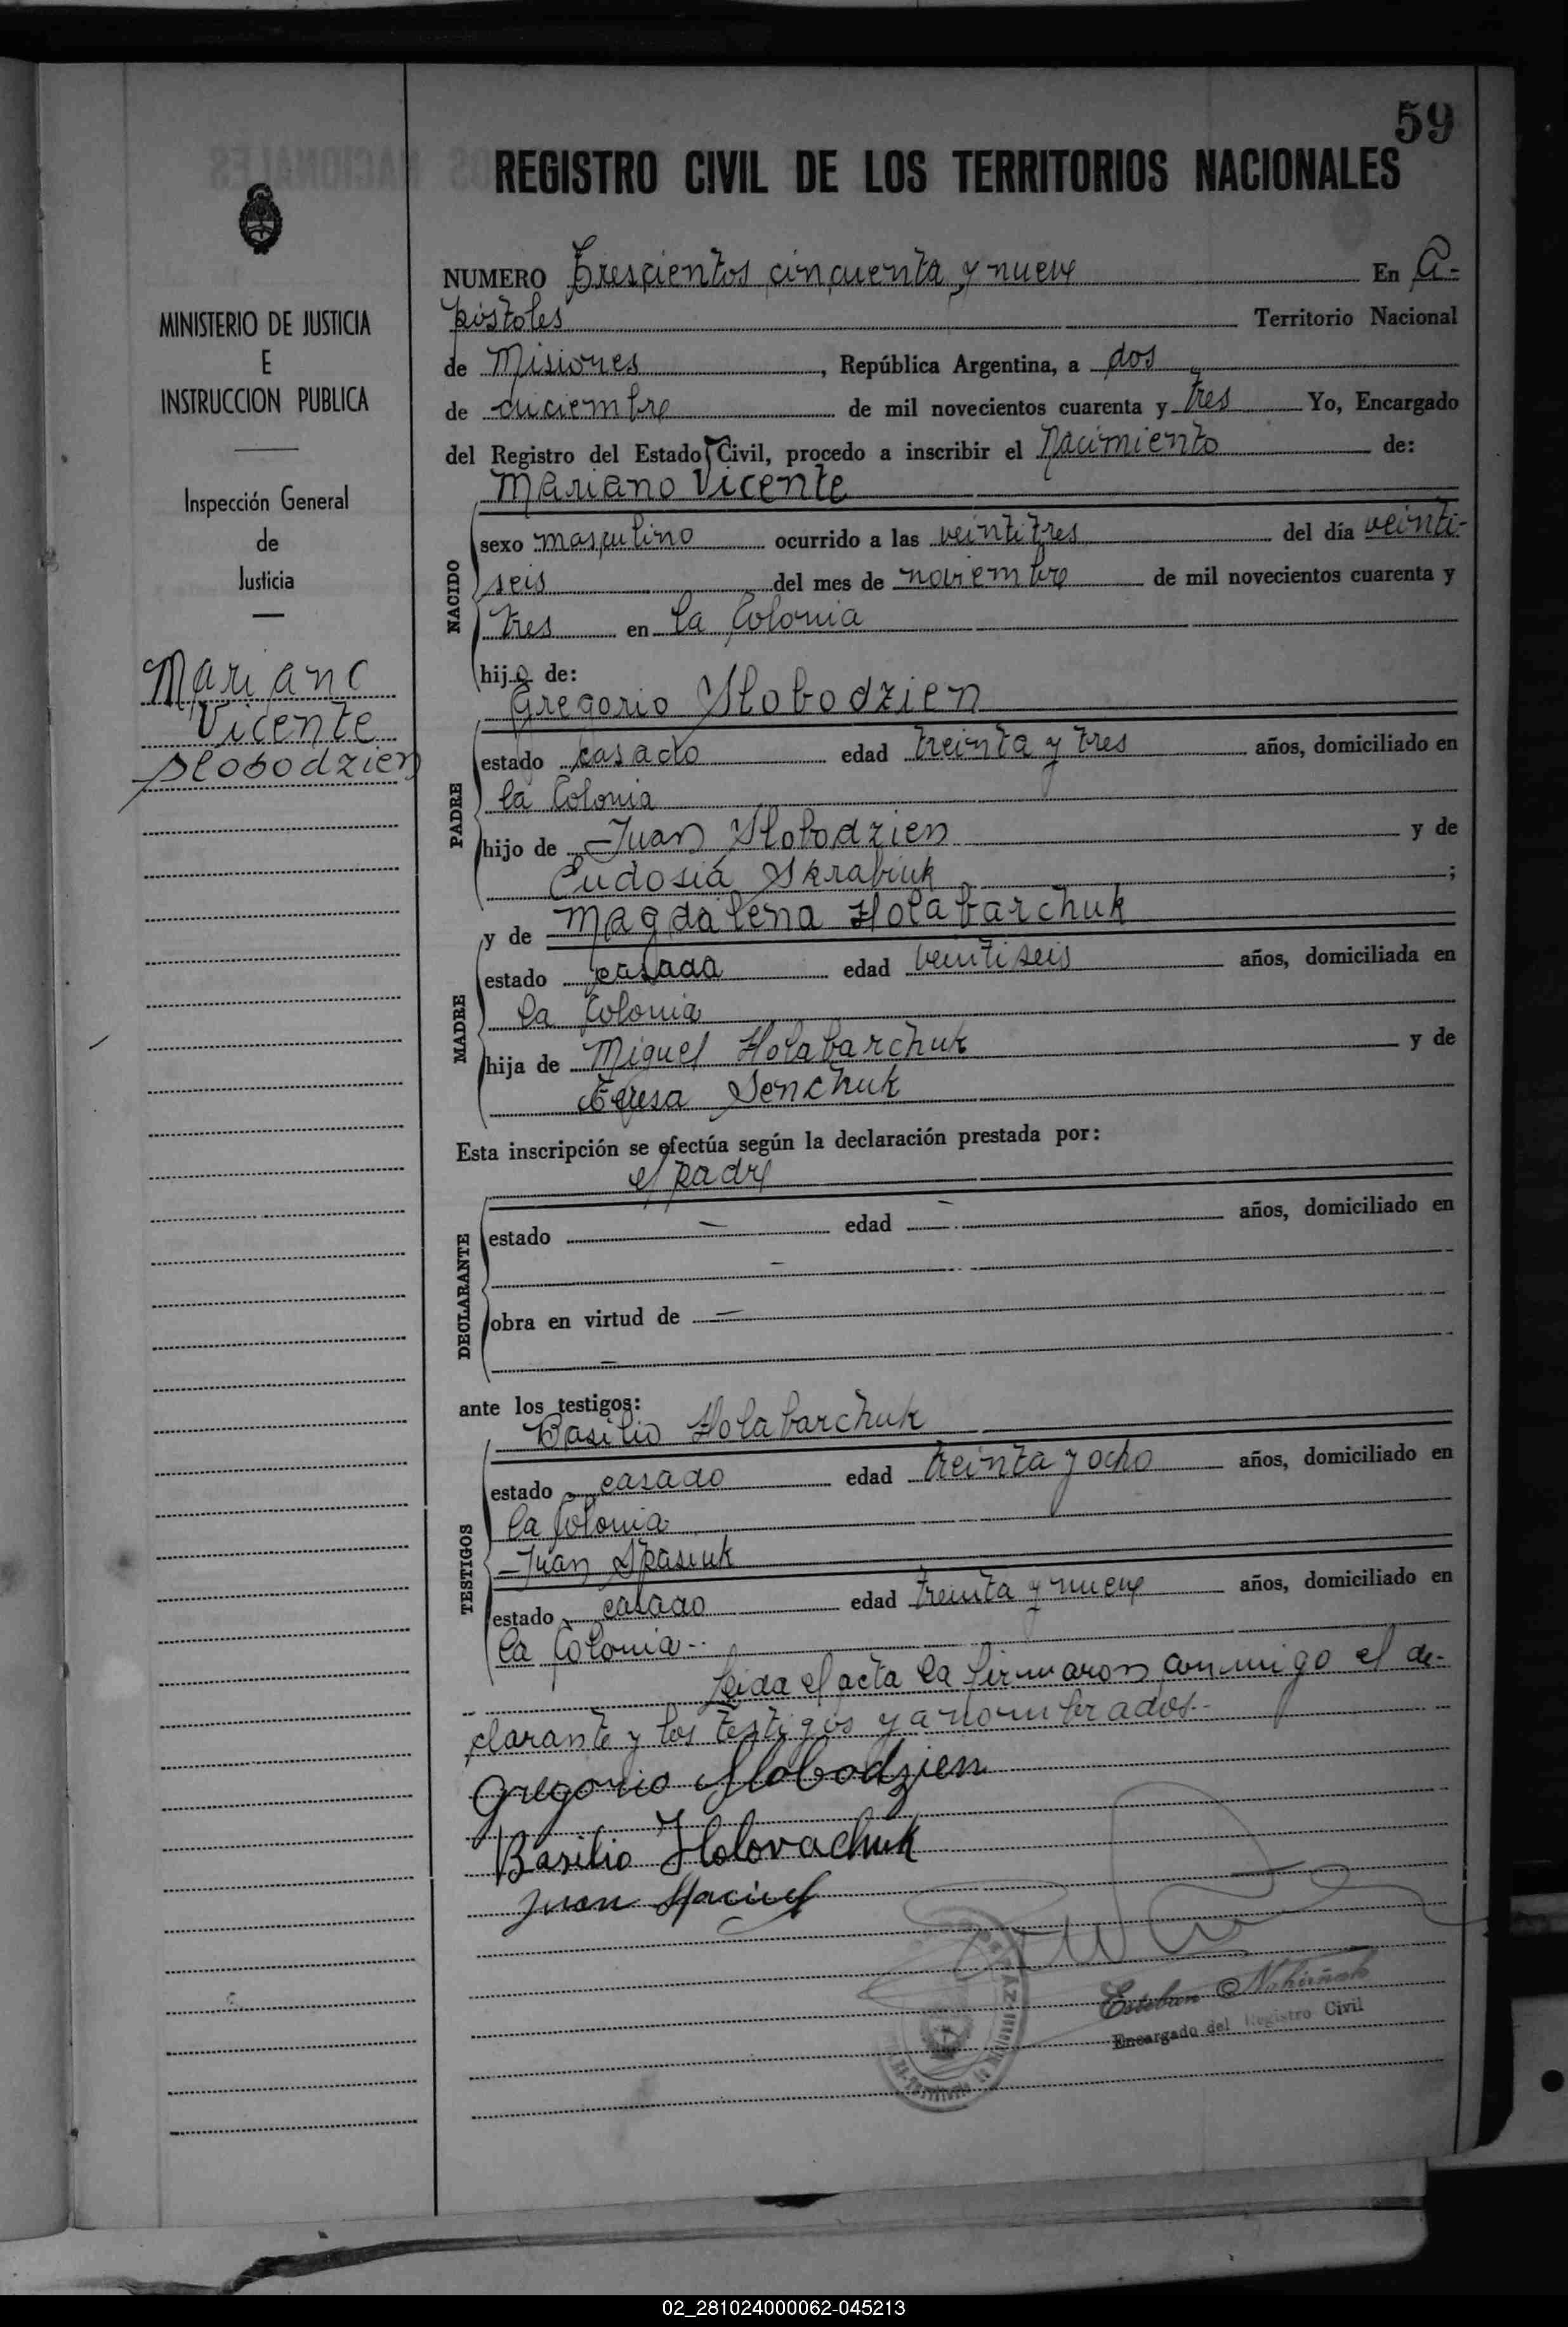 59
REGISTRO CIVIL DE LOS TERRITORIOS NACIONALES
MINISTERIO DE JUSTICIA
E
INSTRUCCION PUBLICA
Inspección General
de
Justicia
Mariano
Vicente
Slobodzien
NUMERO Trescientos cincuenta y nueve En A-
póstoles Territorio Nacional
de Misiones, República Argentina, a dos
de diciembre de mil novecientos cuarenta y tres Yo, Encargado
del Registro del Estado Civil, procedo a inscribir el Nacimiento de:
Mariano Vicente
NACIDO
sexo masculino ocurrido a las veintitres del día veinti-
seis del mes de noviembre de mil novecientos cuarenta y
tres en la Colonia
hijo de:
Gregorio Slobodzien
PADRE
estado casado edad treinta y tres años, domiciliado en
la Colonia
hijo de Juan Slobodzien y de
Eudosia Skrabiuk;
y de Magdalena Holabarchuk
MADRE
estado casada edad veintiseis años, domiciliada en
la Colonia
hija de Miguel Holabarchuk y de
Teresa Senchuk
Esta inscripción se efectúa según la declaración prestada por:
el padre
DECLARANTE
estado — edad — años, domiciliado en
—
obra en virtud de —
—
ante los testigos:
Basilio Holabarchuk
TESTIGOS
estado casado edad treinta y ocho años, domiciliado en
la Colonia
Juan Spasiuk
estado casado edad treinta y nueve años, domiciliado en
la Colonia--
Leida el acta la firmaron conmigo el de-
clarante y los testigos ya nombrados--
Gregorio Slobodzien
Basilio Holovachuk
Juan
Esteban
Encargado del Registro Civil
02_281024000062-045213